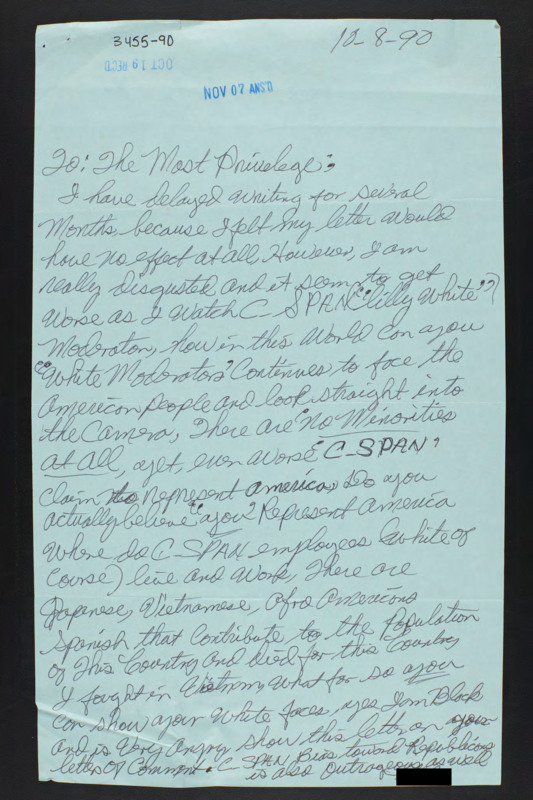 3455-90
10-8-90
OCT 19 REC'D
NOV 07 ANS'D
To: The Most Privilege:,
I have delayed writing for several
Months because I felt my letter would
have no effect at all. However, I am
really disgusted and it seem to get
Worse as I Watch C-SPAN "lilly White"?
Moderator, how in this World can you
"White Moderators" Continues to face the
American people and look straight into
the Camera, There are "no Minorities
at all, yet, even worse "C-SPAN"
claim to represent america, Do you
actually believe "you" Represent America
Where do C-SPAN employees (white of
Course) live and Work, There are
Japanese, Vietnamese, Afro Americans
Spanish that Contribute to the Population
of This Country and died for this Country
I fought in Vietnam, What for so you
can show your White faces, yes I'm Black
and is Very Angry show this letter on your
letters of Comment. C-SPAN Bias toward Republicans
is also Outrageous as well